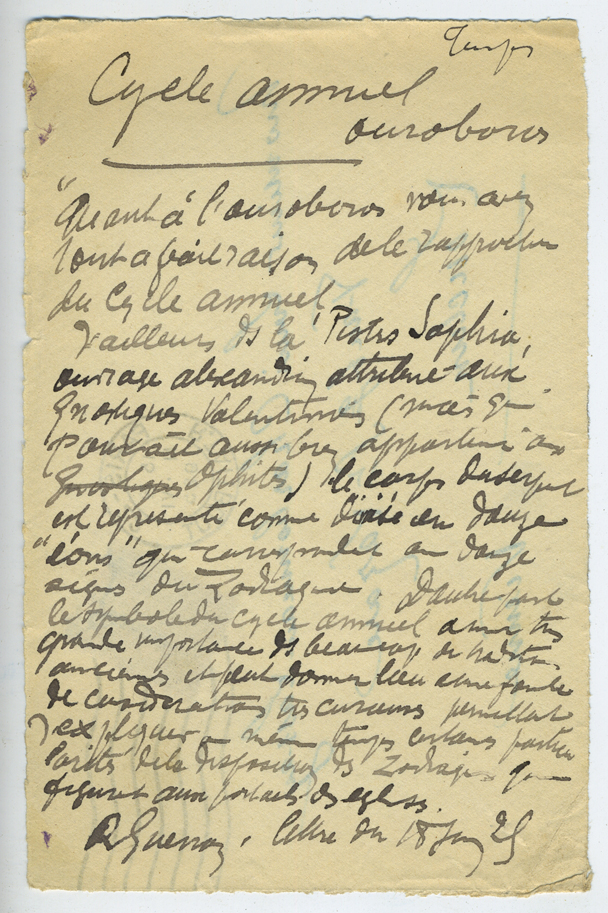 Temps
Cycle annuel
ouroboros
"Quant à l'ouroboros vous avez
tout à fait raison de le rapporter
du Cycle annuel
D'ailleurs ds la 'Pistis Sophia,
ouvrage alexandrin attribué aux
Gnostiques Valentiniens (mais qui
pourrait aussi bien appartenir aux
Gnostiques Ophites) le corps du serpent
est représenté comme divisé en douze
"éons" qui correspondent aux douze
signes du Zodiaque. D'autre part
le symbole du cycle annuel a une très
grande importance ds beaucoup de traditions
anciennes et peut donner lieu à une foule
de considérations très curieuses permettant
d'expliquer en même temps certaines particu
larités de la disposition des Zodiaques qui
figurent aux portails des églises.
R Guenon, lettre du 18 25